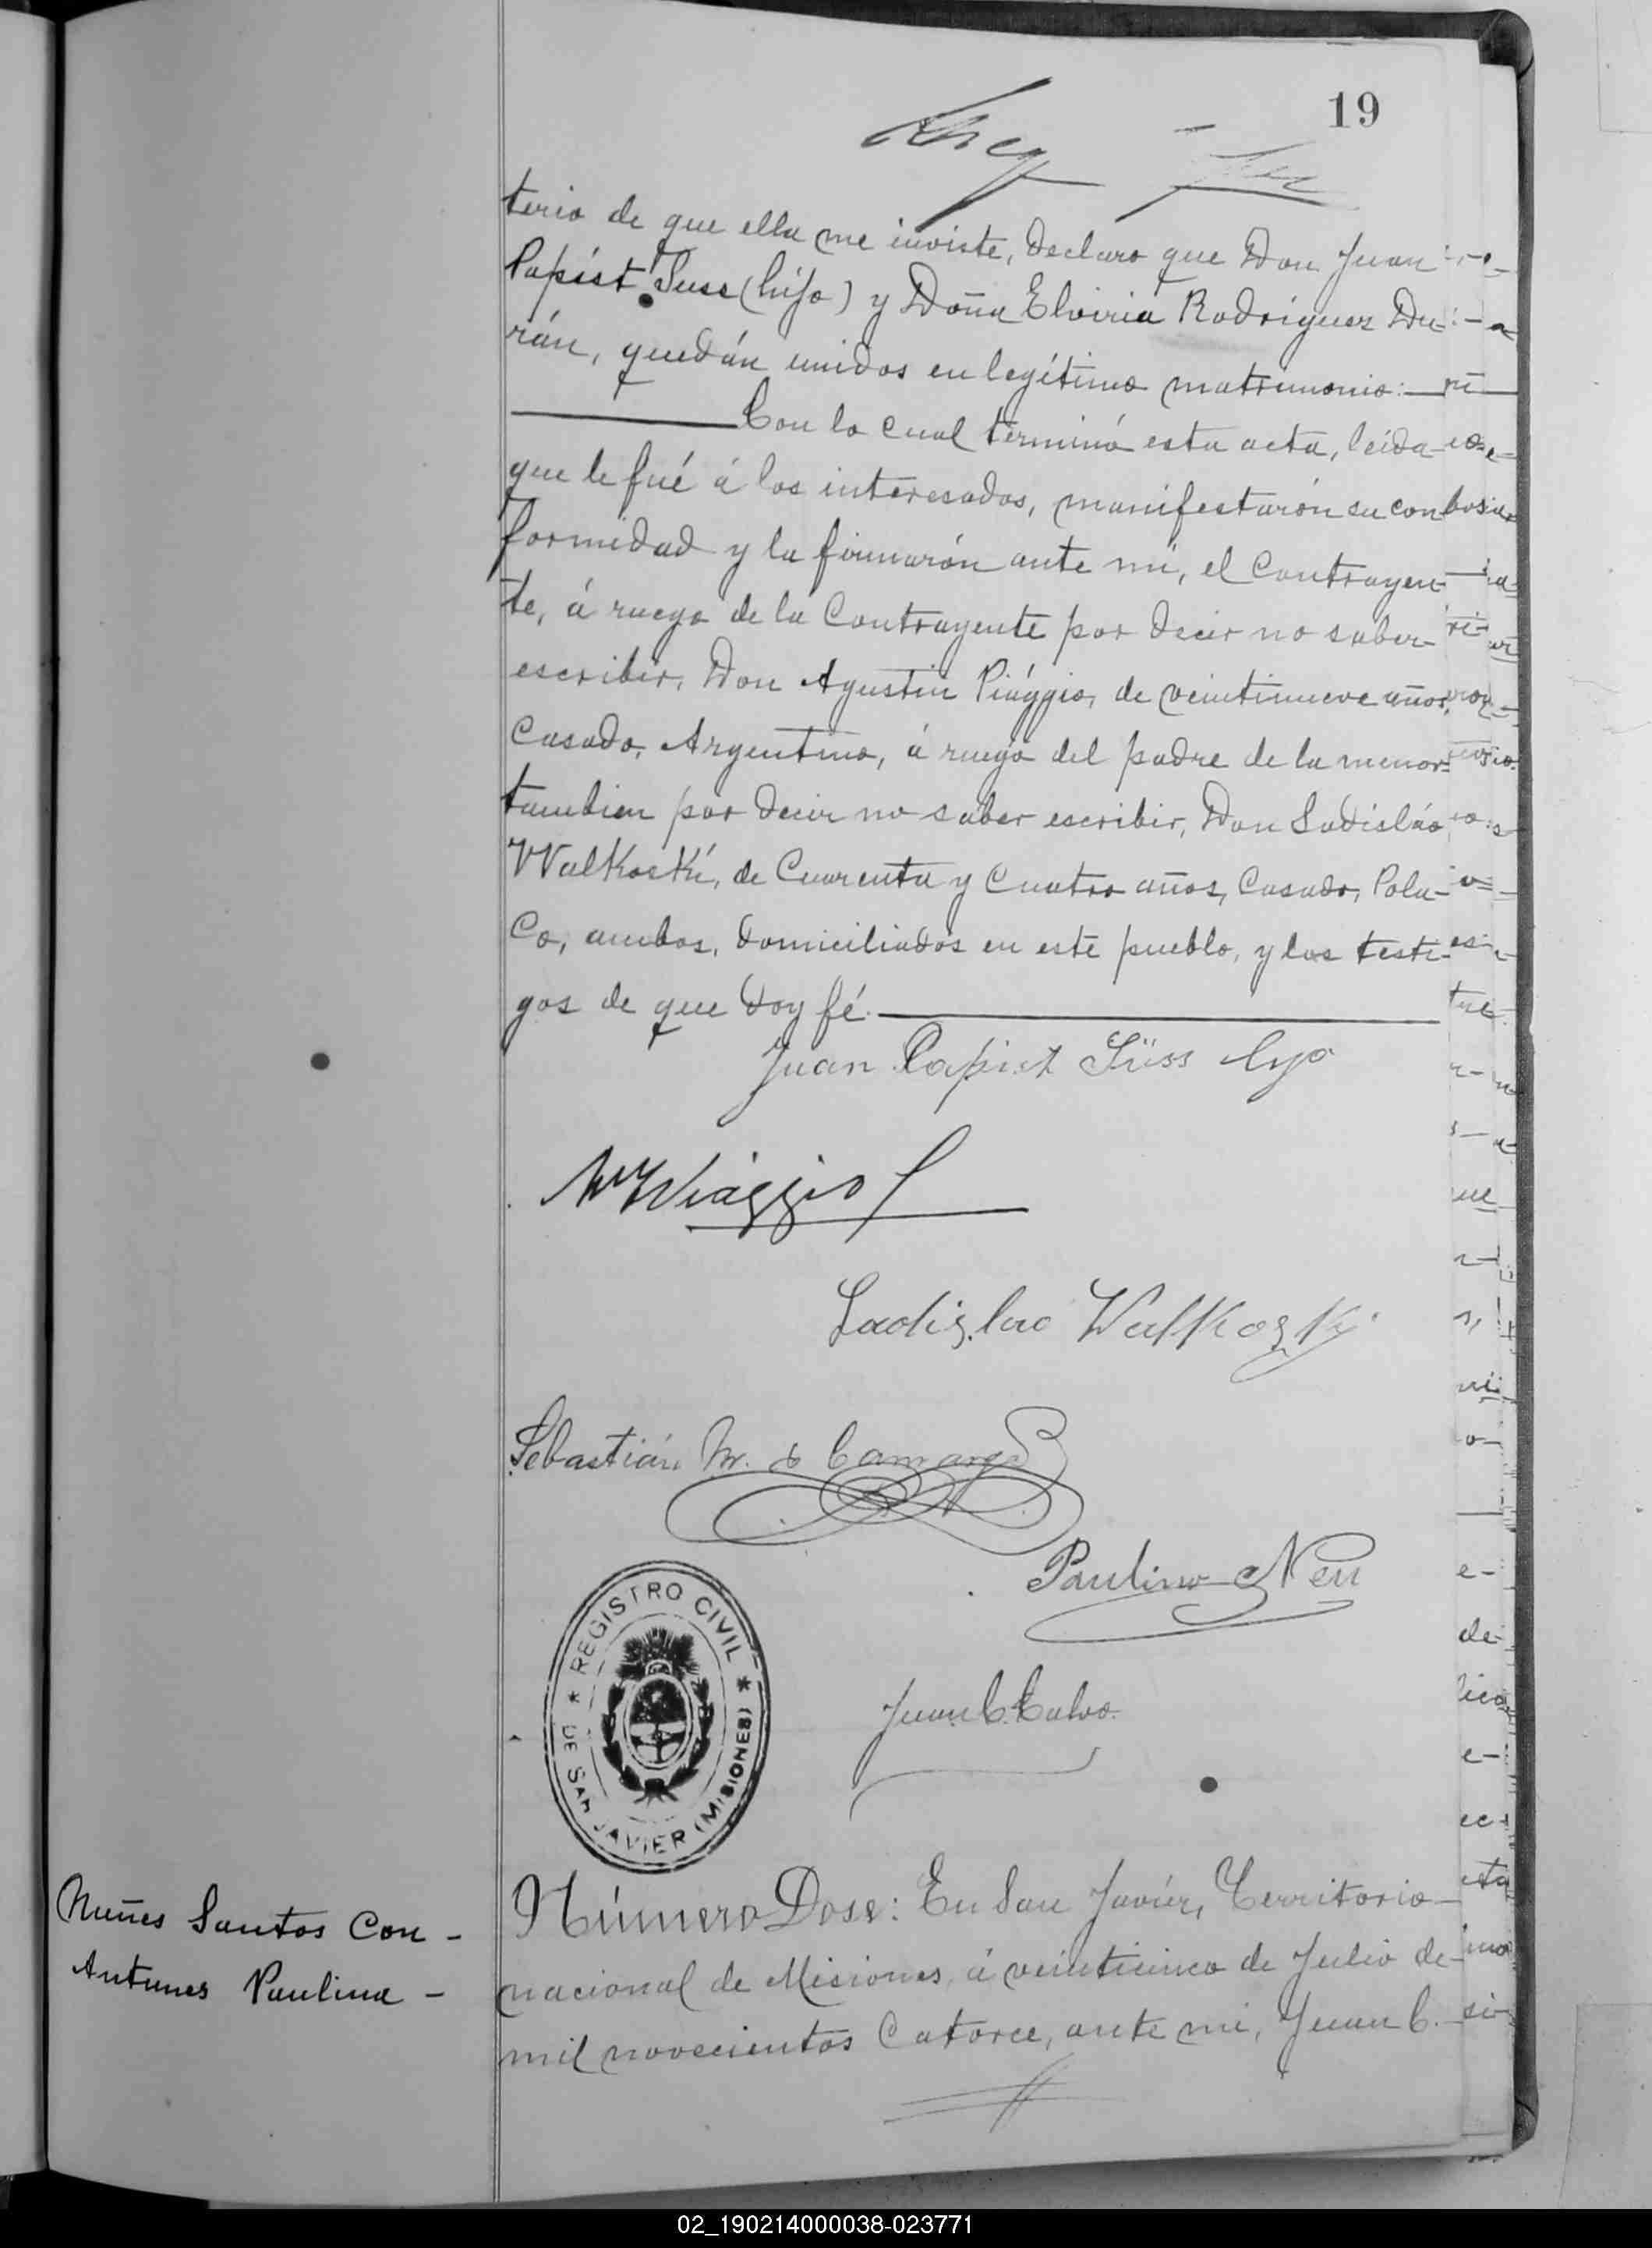 19
terio de que ella me inviste, declaro que Don Juan
Papist Suss (hijo) y Doña Elviria Rodríguez Du-
rán, quedán unidos en legítimo matrimonio:
Con lo cual terminó esta acta, leida
que le fué á los interesados, manifestarón su con
formidad y la firmarón ante mi, el Contrayen-
te, á ruego de la Contrayente por decir no saber
escribir, Don Agustin Piággio, de veintinueve años,
Casado, Argentino, á ruego del padre de la menor
tambien por decir no saber escribir, Don Ladisláo
Walkoski, de Cuarenta y Cuatro años, Casado, Pola-
Co, ambos, domiciliados en este pueblo, y los testi-
gos de que doy fé.
Juan Papist Süss hijo
Piaggio
Ladislao Walkoski
Sebastián M. d Camargo
Paulino Neu
REGISTRO CIVIL
DE SAN JAVIER (MISIONES)
Juan C. Calvo.
Nuñes Santos Con -
Antunes Paulina -
Número Dose: En San Javiér, Territorio
nacional de Misiones, á veinticinco de Julio de
mil novecientos Catorce, ante mi, Juan C.
02_190214000038-023771